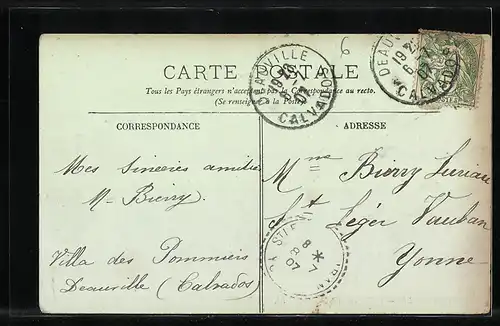 6
CARTE POSTALE
Tous les Pays étrangers n'acceptent pas la Correspondance au recto.
(Se renseigner à la Poste)
DEAUVILLE
CALVADOS
DEAUVILLE
CALVADOS
CORRESPONDANCE
ADRESSE
Mes sincères amitiés
M. Bierry.
Villa des Pommiers
Deauville (Calvados)
Mme Bierry
St Léger Vauban
Yonne
8
8 * 7
07